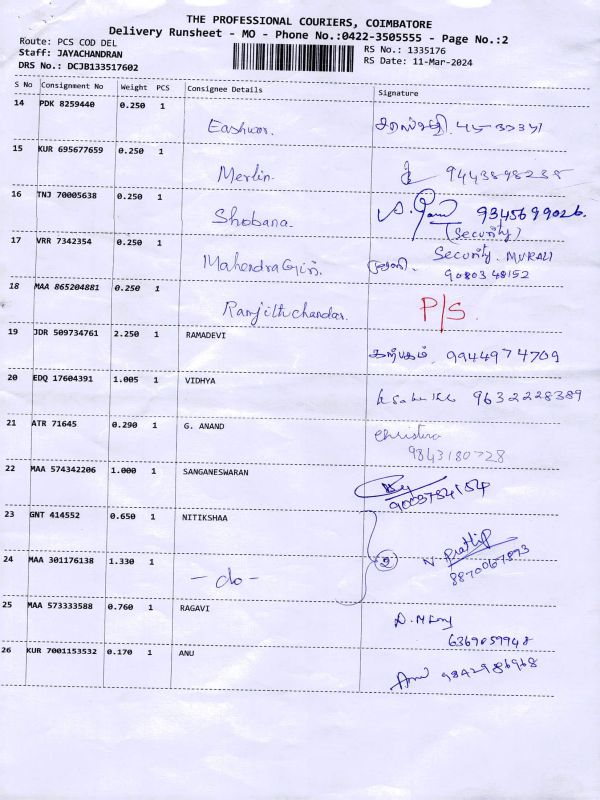 THE PROFESSIONAL COURIERS, COIMBATORE
Delivery Runsheet - MO - Phone No.:0422-3505555 - Page No.:2
Route: PCS COD DEL
Staff: JAYACHANDRAN
DRS No.: DCJB133517602
RS No.: 1335176
RS Date: 11-Mar-2024
S No Consignment No Weight PCS Consignee Details Signature
14 PDK 8259440 0.250 1
Eashwar.
15 KUR 695677659 0.250 1
Merlin. 9443898238
16 TNJ 70005638 0.250 1
Shobana. 9345699026.
(Security)
17 VRR 7342354 0.250 1
Mahendragiri. Security. MURALI
9080348152
18 MAA 865204881 0.250 1
Ramjithchandar. P/S.
19 JDR 509734761 2.250 1 RAMADEVI
கற்பகம். 9944974709
20 EDQ 17604391 1.005 1 VIDHYA
9632228389
21 ATR 71645 0.290 1 G. ANAND
Christina
9843180728
22 MAA 574342206 1.000 1 SANGANESWARAN
9003734154
23 GNT 414552 0.650 1 NITIKSHAA
2 N Prathip
8870067893
24 MAA 301176138 1.330 1
- do -
25 MAA 573333588 0.760 1 RAGAVI
6369059948
26 KUR 7001153532 0.170 1 ANU
Anu 9842986968